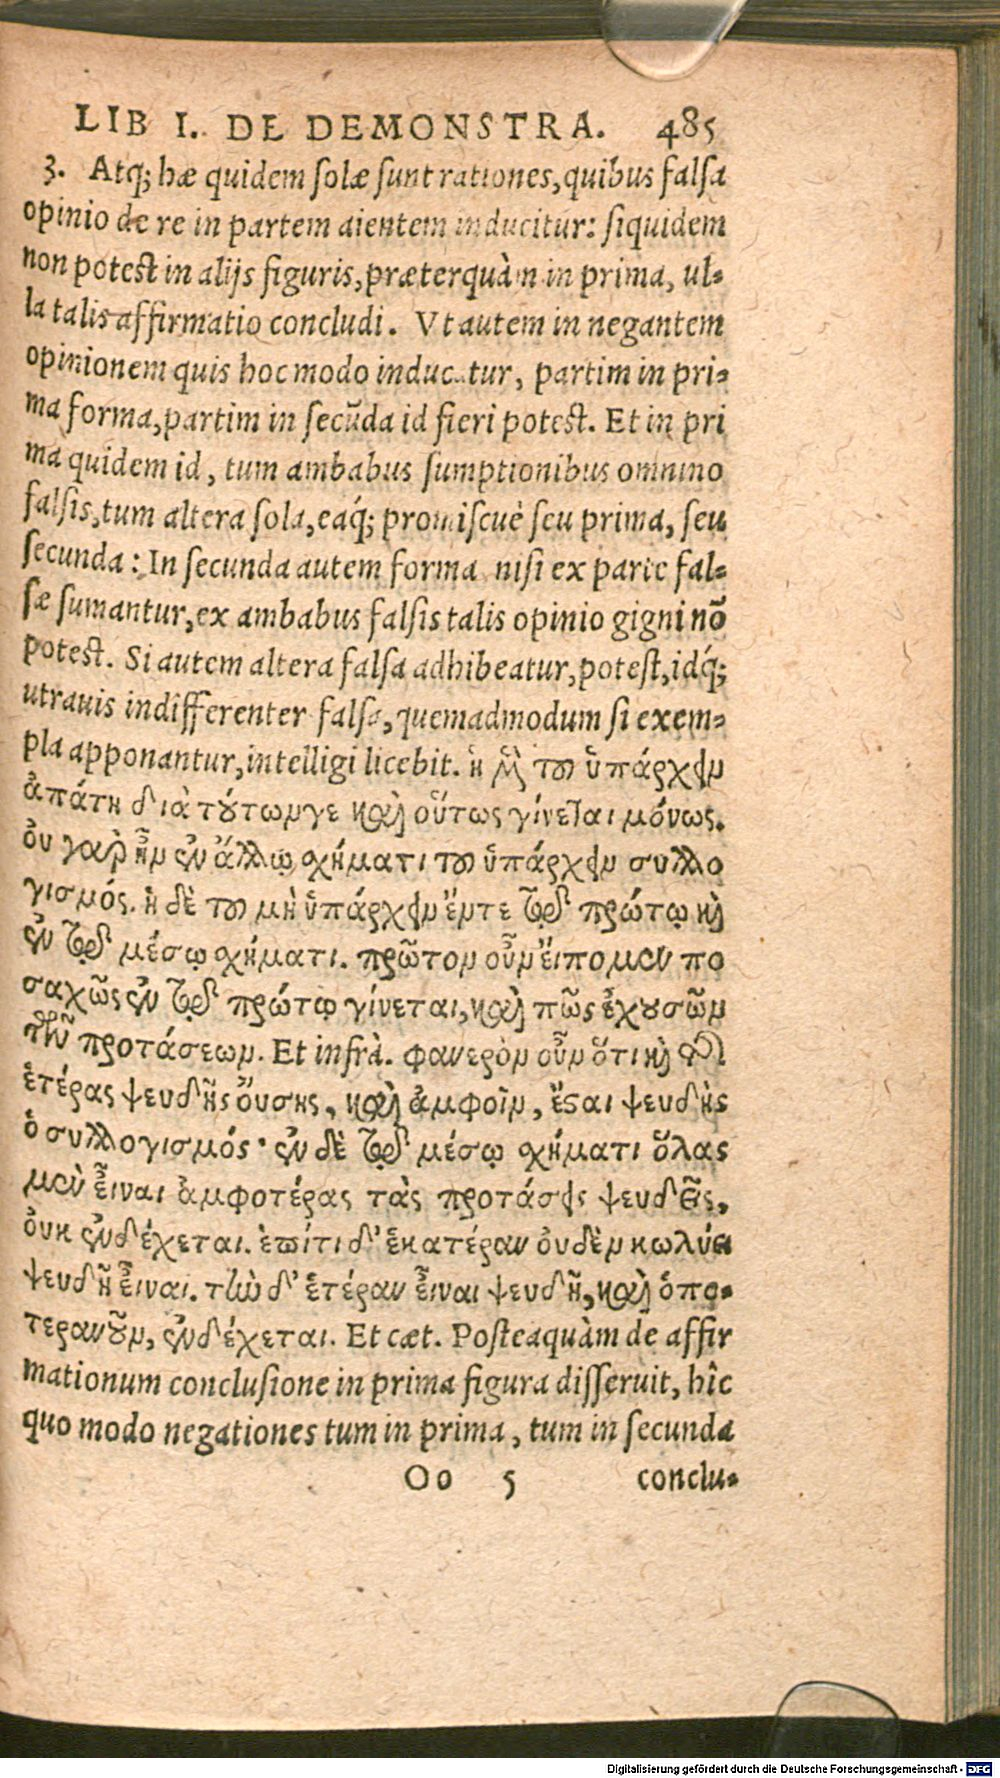 LIB I. DE DEMONSTRA. 485
3. Atq; hæ quidem solæ sunt rationes, quibus falsa
opinio de re in partem aientem inducitur: siquidem
non potest in alijs figuris, præterquàm in prima, ul-
la talis affirmatio concludi. Vt autem in negantem
opinionem quis hoc modo inducatur, partim in pri-
ma forma, partim in secūda id fieri potest. Et in pri
ma quidem id, tum ambabus sumptionibus omnino
falsis, tum altera sola, eaq́; promiscuè seu prima, seu
secunda: In secunda autem forma nisi ex parte fal-
sæ sumantur, ex ambabus falsis talis opinio gigni nō
potest. Si autem altera falsa adhibeatur, potest, idq́;
utrauis indifferenter falsa, quemadmodum si exem-
pla apponantur, intelligi licebit. ἡ μὲν τοῦ ὑπάρχειν
ἀπάτη διὰ τούτωμγε καὶ οὕτως γίνεται μόνως.
ὀυ γαρ ἦν ἐν ἄλλῳ σχήματι τοῦ ὑπάρχειν συλλο
γισμός. ἡ δὲ τοῦ μὴ ὑπάρχειν ἔντε τῷ πρώτῳ καὶ
ἐν τῷ μέσῳ σχήματι. πρῶτον οὖν ἔιπομεν πο
σαχῶς ἐν τῷ πρώτῳ γίνεται, καὶ πῶς ἐχουσῶν
τῶν προτάσεων. Et infrà. φανερὸν οὖν ὅτι καὶ τῆς
ἑτέρας ψευδῆς ὄυσης, καὶ ἀμφοῖν, ἔσαι ψευδὴς
ὁ συλλογισμός· ἐν δὲ τῷ μέσῳ σχήματι ὅλας
μὲν ἔιναι ἀμφοτέρας τὰς προτάσεις ψευδεῖς,
ὀυκ ἐνδέχεται. ἐπίτι δ' ἑκατέραν ὀυδὲν κωλύει
ψευδῆ ἔιναι. τὴν δ' ἑτέραν ἔιναι ψευδῆ, καὶ ὁπο-
τερανοῦν, ἐνδέχεται. Et cæt. Posteaquàm de affir
mationum conclusione in prima figura disseruit, hîc
quo modo negationes tum in prima, tum in secunda
Oo 5 conclu-
Digitalisierung gefördert durch die Deutsche Forschungsgemeinschaft - DFG